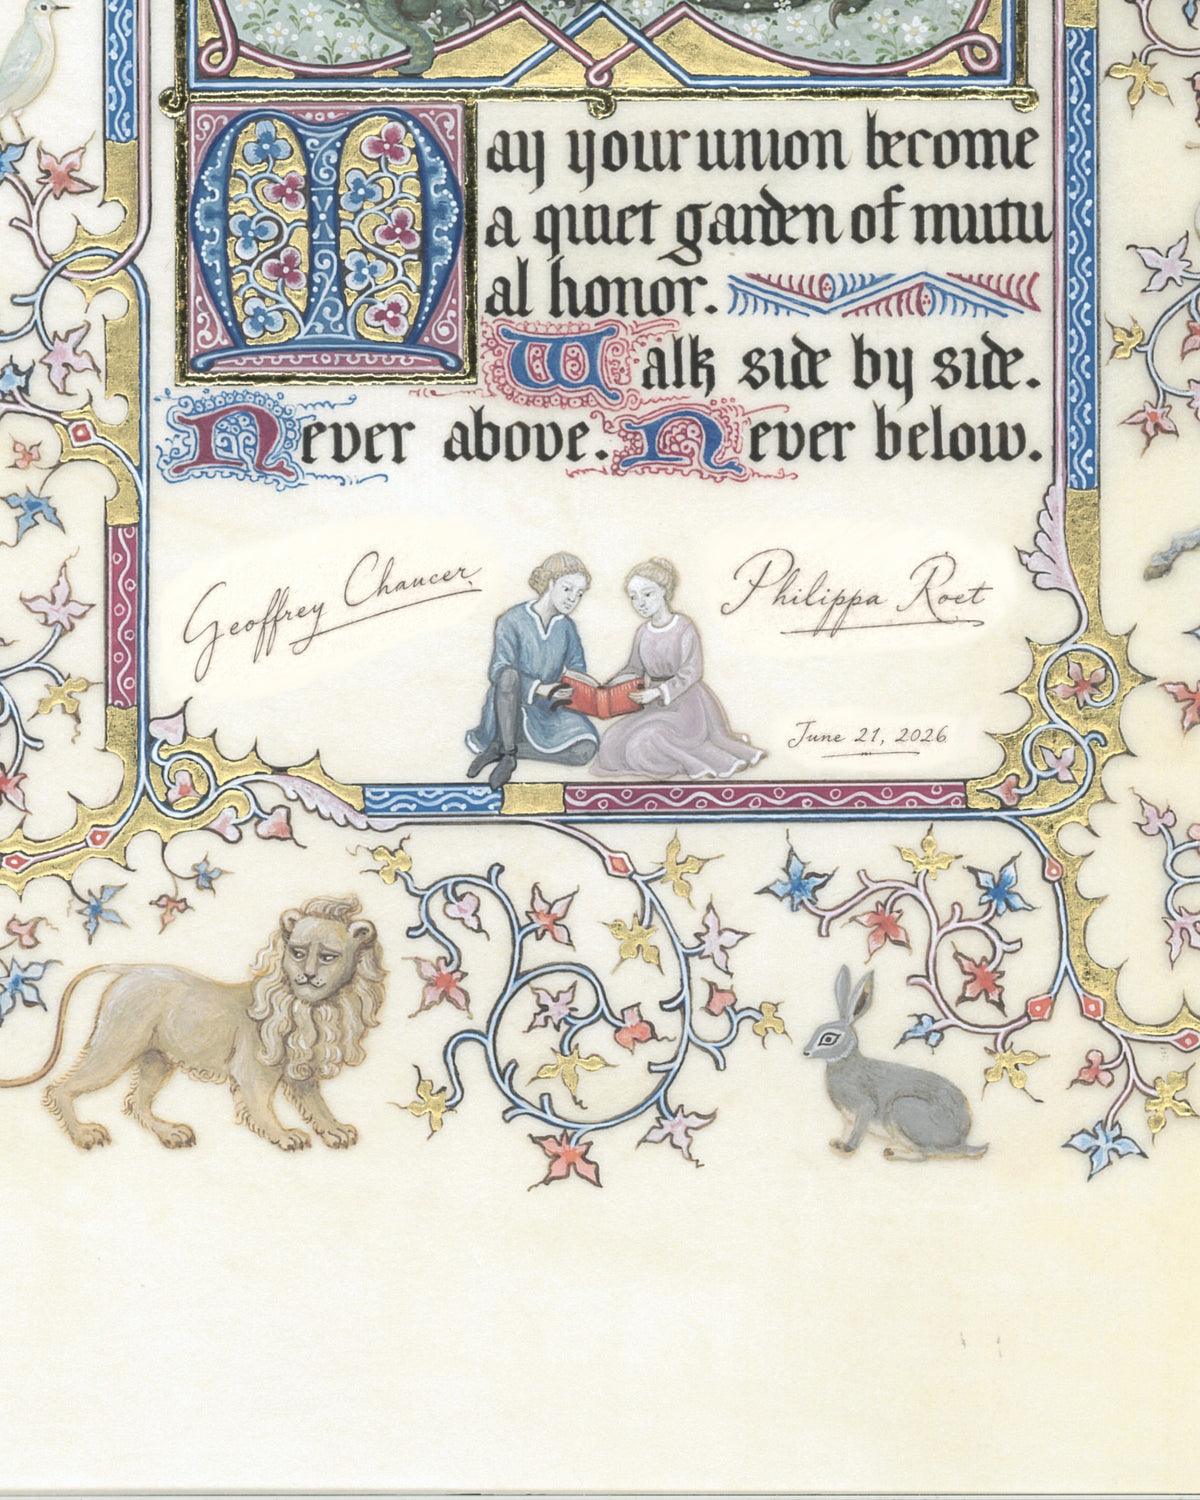 May your union become
a quiet garden of mutu
al honor.
Walk side by side.
Never above. Never below.
Geoffrey Chaucer
Philippa Roet
June 21, 2026